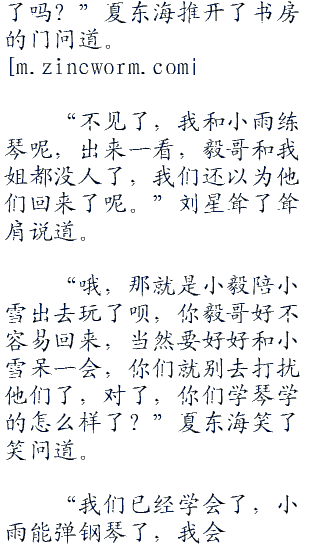 了吗？”夏东海推开了书房
的门问道。
[m.zincworm.com]
“不见了，我和小雨练
琴呢，出来一看，毅哥和我
姐都没人了，我们还以为他
们回来了呢。”刘星耸了耸
肩说道。
“哦，那就是小毅陪小
雪出去玩了呗，你毅哥好不
容易回来，当然要好好和小
雪呆一会，你们就别去打扰
他们了，对了，你们学琴学
的怎么样了？”夏东海笑了
笑问道。
“我们已经学会了，小
雨能弹钢琴了，我会